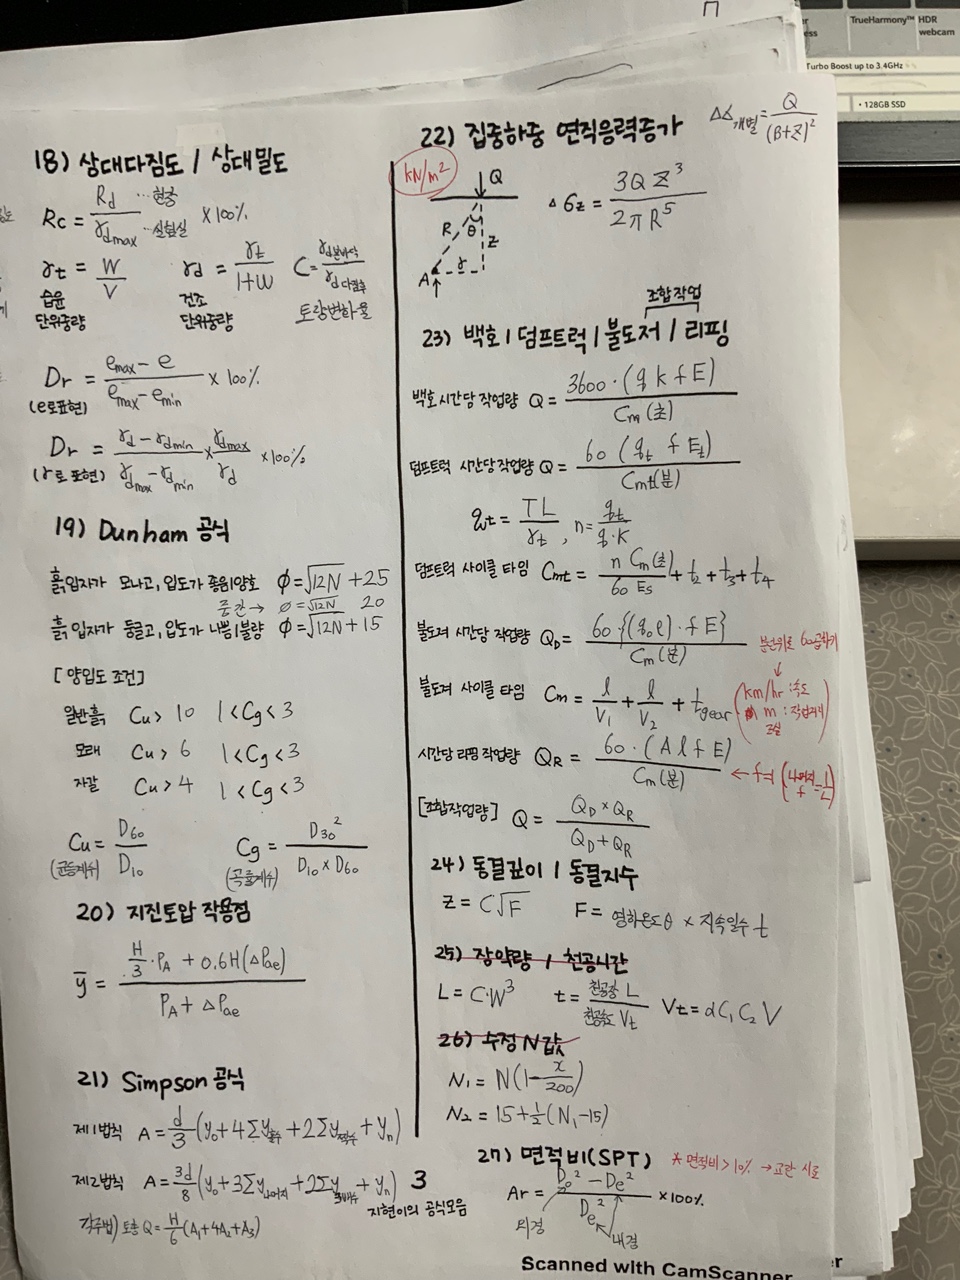 TrueHarmony™ HDR
webcam
Turbo Boost up to 3.4GHz
• 128GB SSD
18) 상대다짐도 / 상대밀도
Rc = Rd / γdmax ×100%
…현장
…실험실
γt = W / V
습윤
단위중량
γd = γt / 1+W
건조
단위중량
C = γd본바닥 / γd다짐후
토량변화율
Dr = emax - e / emax - emin ×100%
(e로표현)
Dr = γd - γdmin / γdmax - γdmin × γdmax / γd ×100%
(γ로 표현)
19) Dunham 공식
흙입자가 모나고, 입도가 좋음/양호 Ø=√12N +25
중간→ Ø=√12N 20
흙 입자가 둥글고, 입도가 나쁨/불량 Ø=√12N+15
[양입도 조건]
일반흙 Cu > 10 1 < Cg < 3
모래 Cu > 6 1 < Cg < 3
자갈 Cu > 4 1 < Cg < 3
Cu = D60 / D10
(균등계수)
Cg = D30² / D10 × D60
(곡률계수)
20) 지진토압 작용점
ȳ = H/3 · PA + 0.6H(ΔPae) / PA + ΔPae
21) Simpson 공식
제1법칙 A = d/3 (y0 + 4Σy홀수 + 2Σy짝수 + yn)
제2법칙 A = 3d/8 (y0 + 3Σy나머지 + 2Σy3배수 + yn)
각주법) 토량 Q = H/6 (A1 + 4A2 + A3)
3
지현이의 공식모음
22) 집중하중 연직응력증가
Δσ개별 = Q / (B+Z)²
kN/m²
Q
R
θ
Z
A
r
Δσz = 3QZ³ / 2πR⁵
조합작업
23) 백호 / 덤프트럭 / 불도저 / 리핑
백호시간당 작업량 Q = 3600·(q k f E) / Cm(초)
덤프트럭 시간당작업량 Q = 60 (qt f Et) / Cmt(분)
qt = TL / γt , n = qt / q·k
덤프트럭 사이클 타임 Cmt = n Cm(초) / 60 Es + t2 + t3 + t4
불도저 시간당 작업량 QD = 60·{(q0ℓ)·f E} / Cm(분)
분단위로 60곱하기
불도저 사이클 타임 Cm = ℓ/V1 + ℓ/V2 + tgear
km/hr : 속도
m : 작업거리
시간당 리핑작업량 QR = 60·(A ℓ f E) / Cm(분)
← f=1 (나머지 f = 1/L)
[조합작업량] Q = QD × QR / QD + QR
24) 동결깊이 / 동결지수
Z = C√F F = 영하온도θ × 지속일수 t
25) 장약량 / 천공시간
L = C·W³ t = 천공장 L / 천공속도 Vt Vt = αC1 C2 V
26) 수정 N값
N1 = N(1 - x/200)
N2 = 15 + ½(N1 - 15)
27) 면적비(SPT)
* 면적비 > 10% → 교란 시료
Ar = Do² - De² / De² ×100%
외경
내경
Scanned with CamScanner